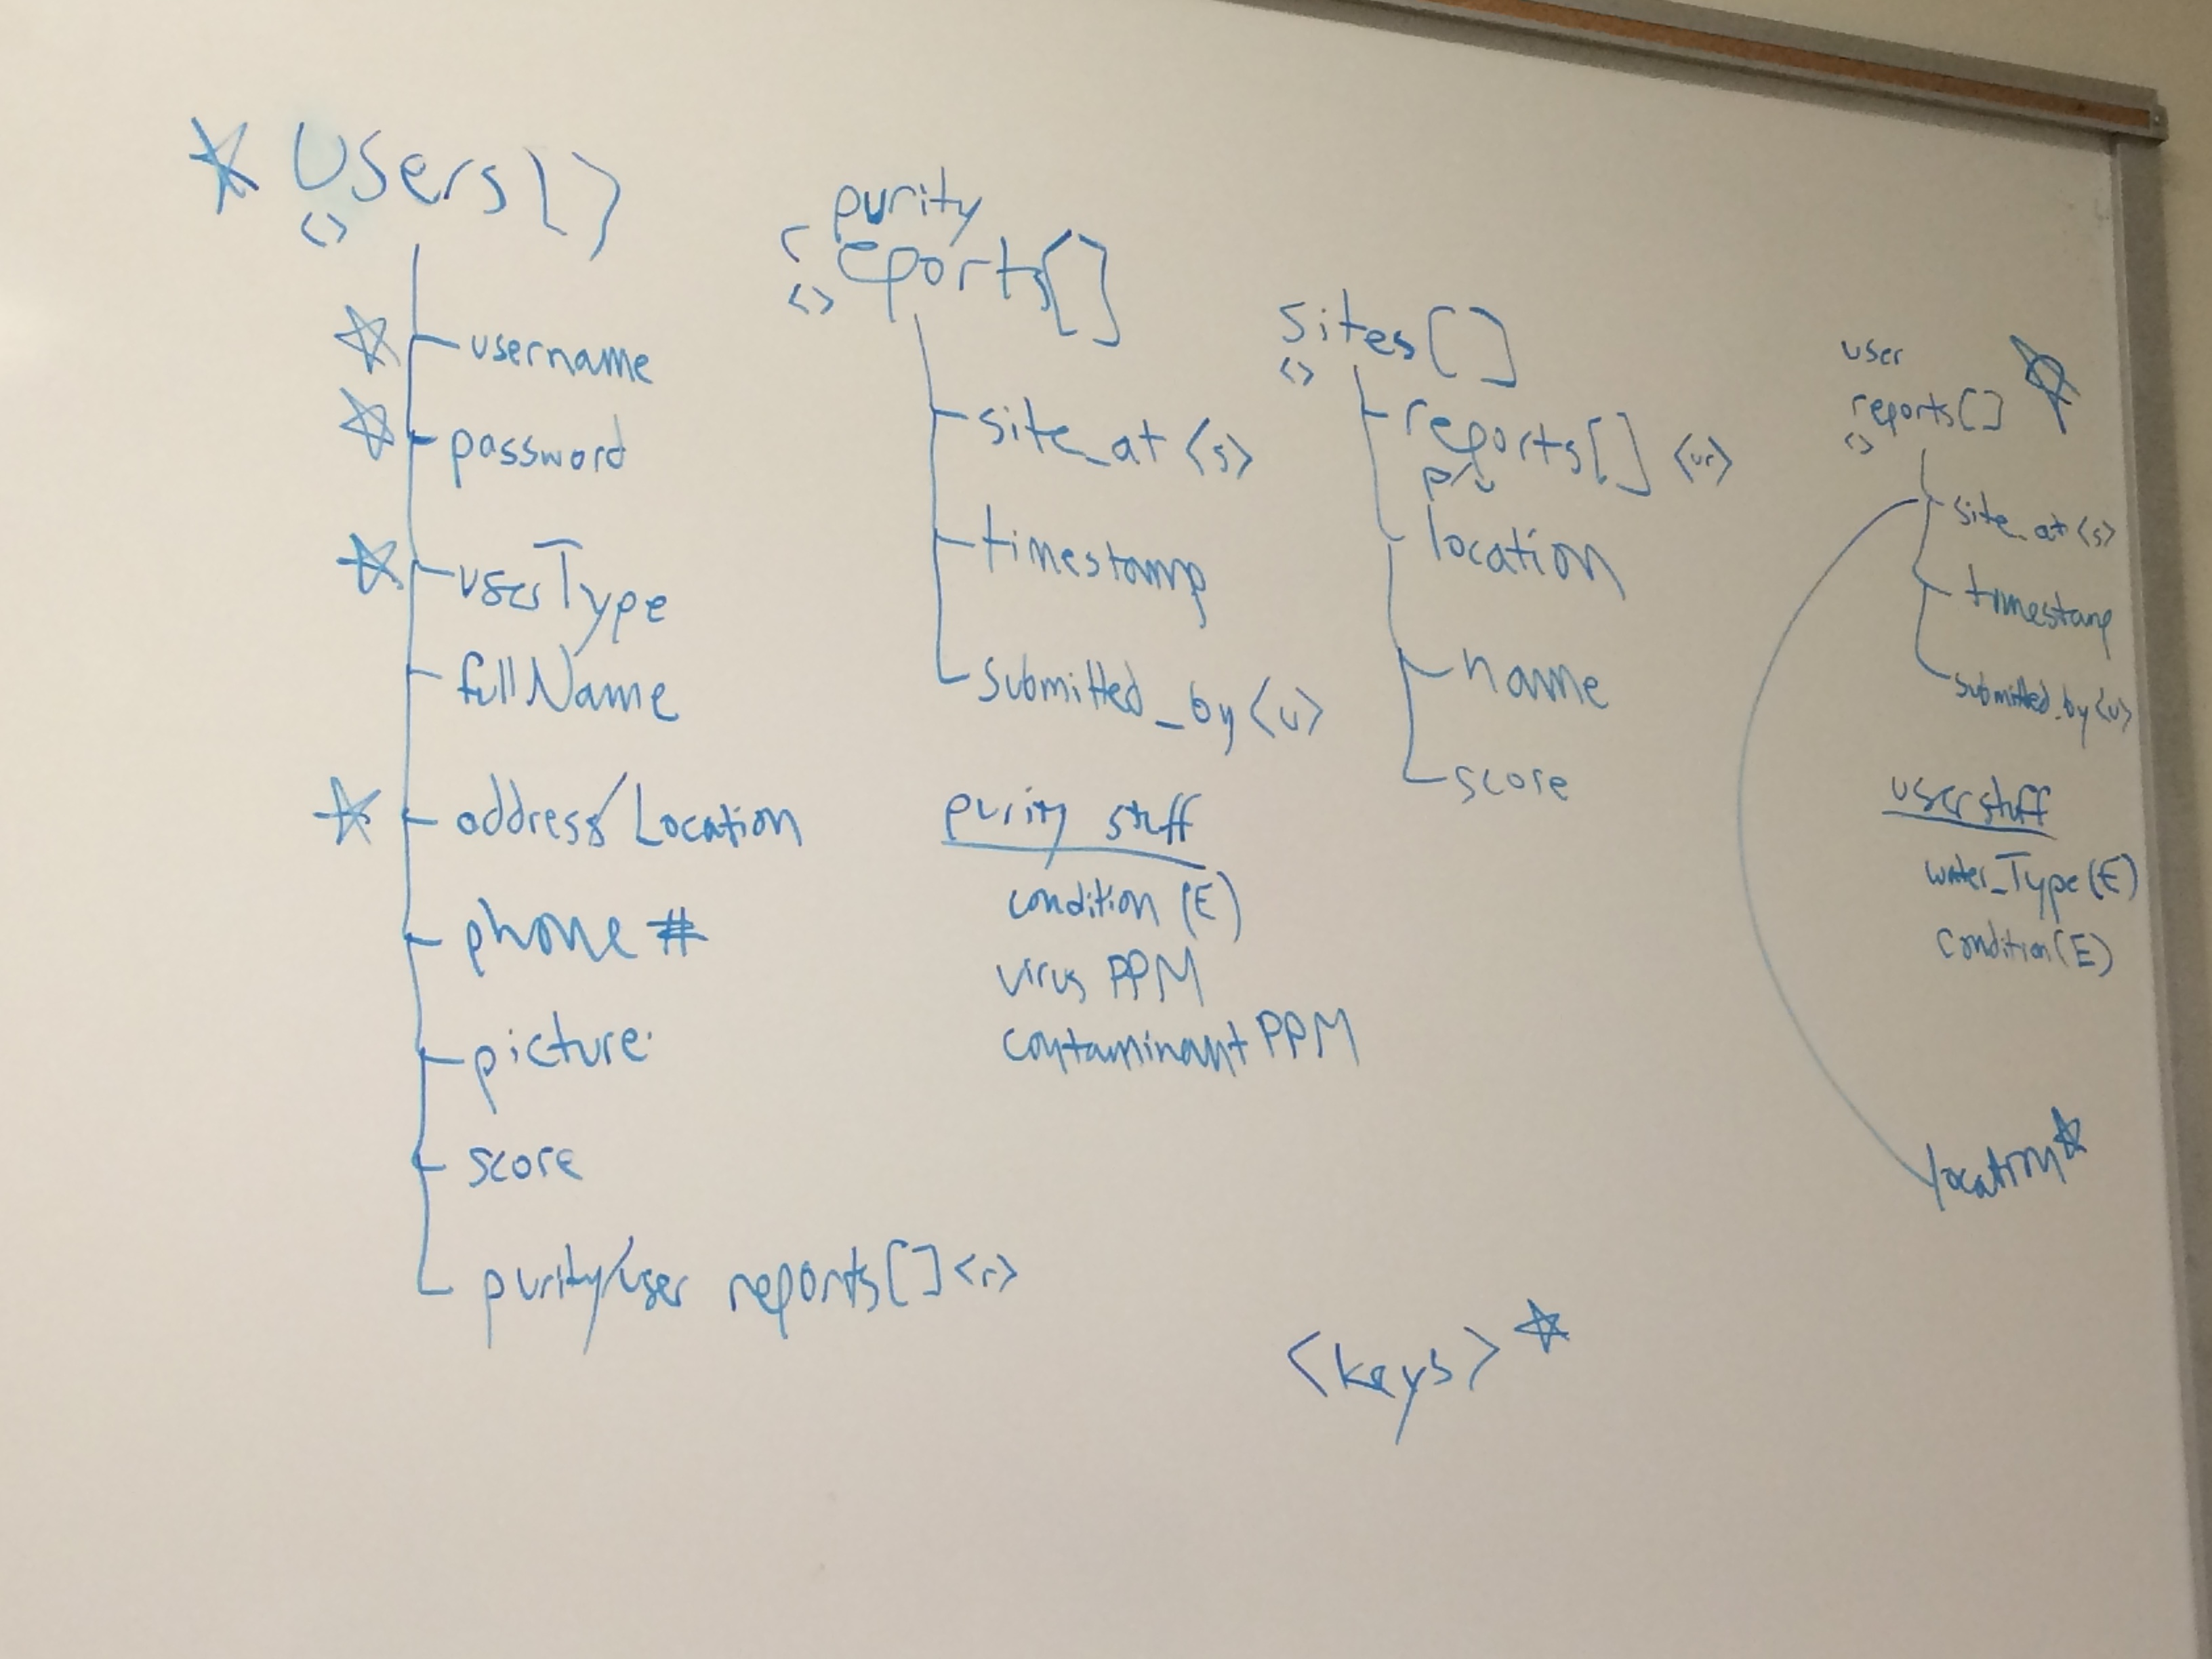 Users[]
<>
username
password
userType
fullName
address/Location
phone #
picture
score
purity/user reports[] <r>
purity
reports[]
<>
site_at <s>
timestamp
submitted_by <u>
purity stuff
condition (E)
virus PPM
contaminant PPM
sites[]
<>
reports[] <ur>
p/u
location
name
score
<keys>
user
reports[]
<>
site_at <s>
timestamp
submitted_by <u>
user stuff
water_Type (E)
condition (E)
location